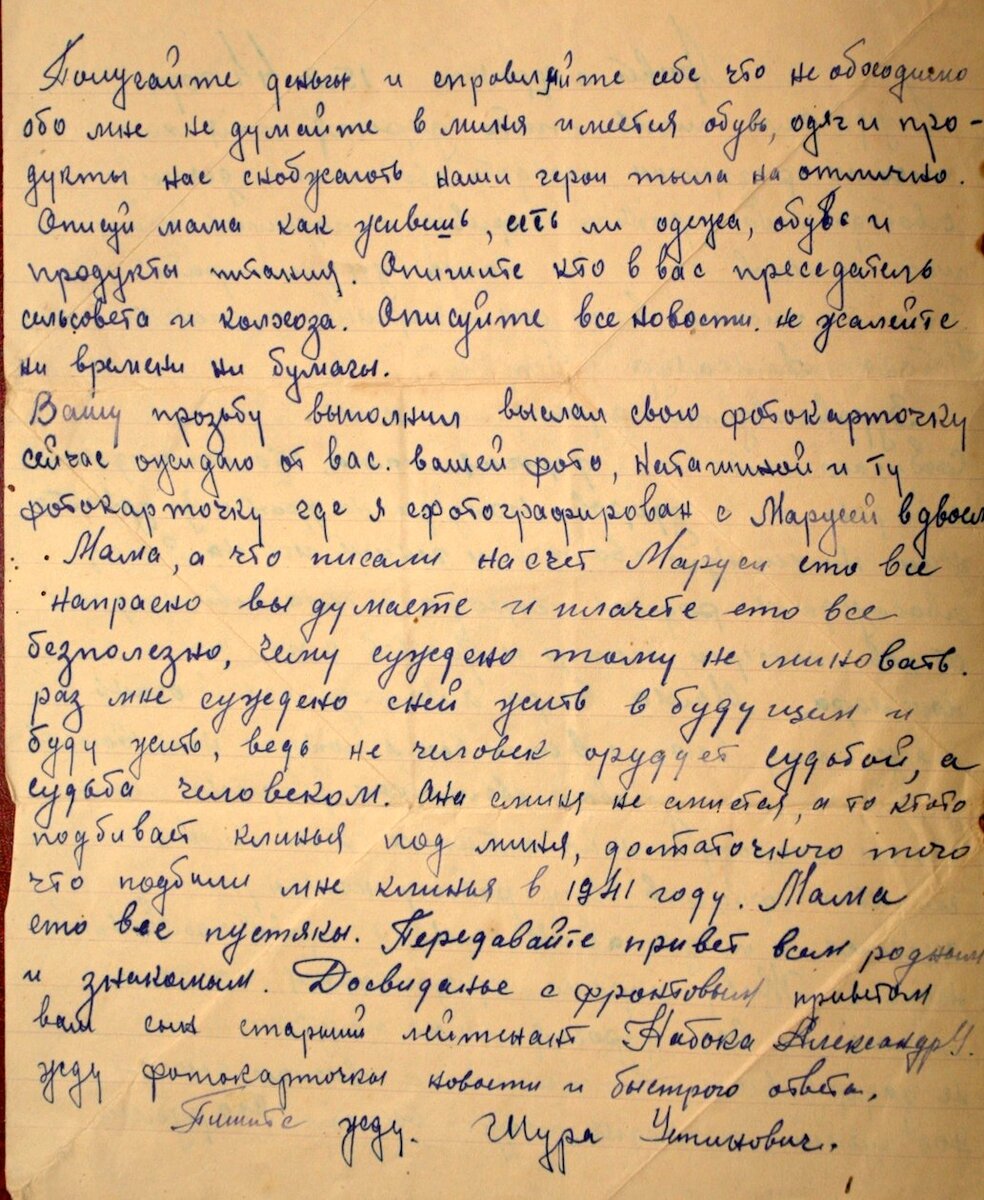 Получайте деньгы и справляйте себе что не обоходимо
обо мне не думайте в миня имеется обувь, одяг и про-
дукты нас снобжають наши герои тыла на отлично.
Описуй мама как живешь, есть ли одежа, обувь и
продукты питания. Опишите кто в вас преседатель
сельсовета и колхоза. Описуйте все новости. не жалейте
ни времени ни бумагы.
Вашу прозьбу выполнил выслал свою фотокарточку
сейчас ожидаю от вас. вашей фото, Наташиной и ту
фотокарточку где я сфотографирован с Марусей вдвоем
. Мама, а что писали насчет Маруси ето все
напрасно вы думаете и плачете ето все
безполезно, чему суждено тому не миновать.
раз мне суждено сней жить в будущем и
буду жить, ведь не человек орудует судьбой, а
судьба человеком. Она сминя не смиется, а то ктото
подбивает клинья под миня, достаточного того
что подбили мне клинья в 1941 году. Мама
ето все пустякы. Передавайте привет всем родным
и знакомым. Досвиданье с фронтовым приветом
ваш сын старший лейтенант Набока Александр У.
жду фотокарточкы новости и быстрого ответа.
Пишите жду. Шура Устинович.